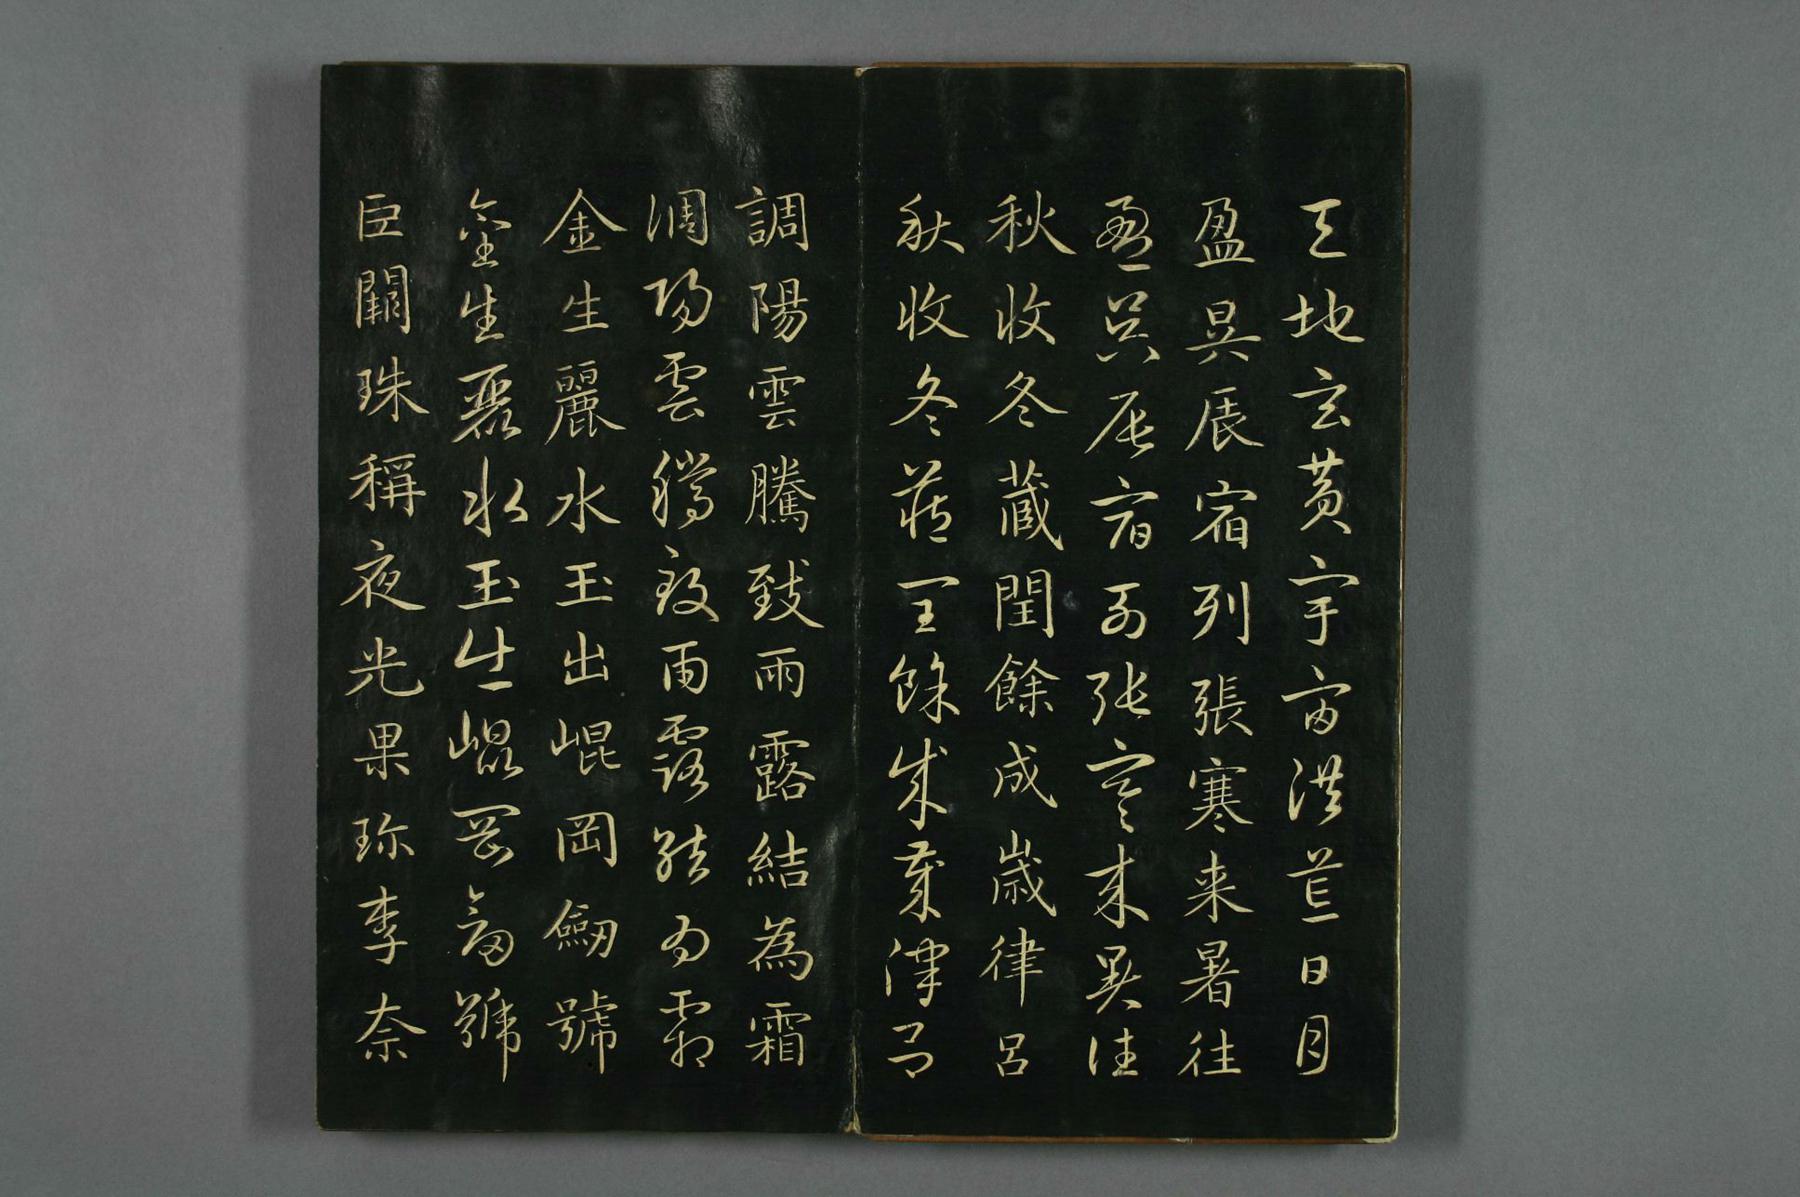 天地玄黃宇宙洪荒日月
盈昃辰宿列張寒来暑往
盈昃辰宿列張寒来暑往
秋收冬蔵閏餘成歲律呂
秋收冬蔵閏餘成歲律呂
調陽雲騰致雨露結為霜
調陽雲騰致雨露結為霜
金生麗水玉出崐岡劒號
金生麗水玉出崐岡劒號
巨闕珠稱夜光果珎李奈